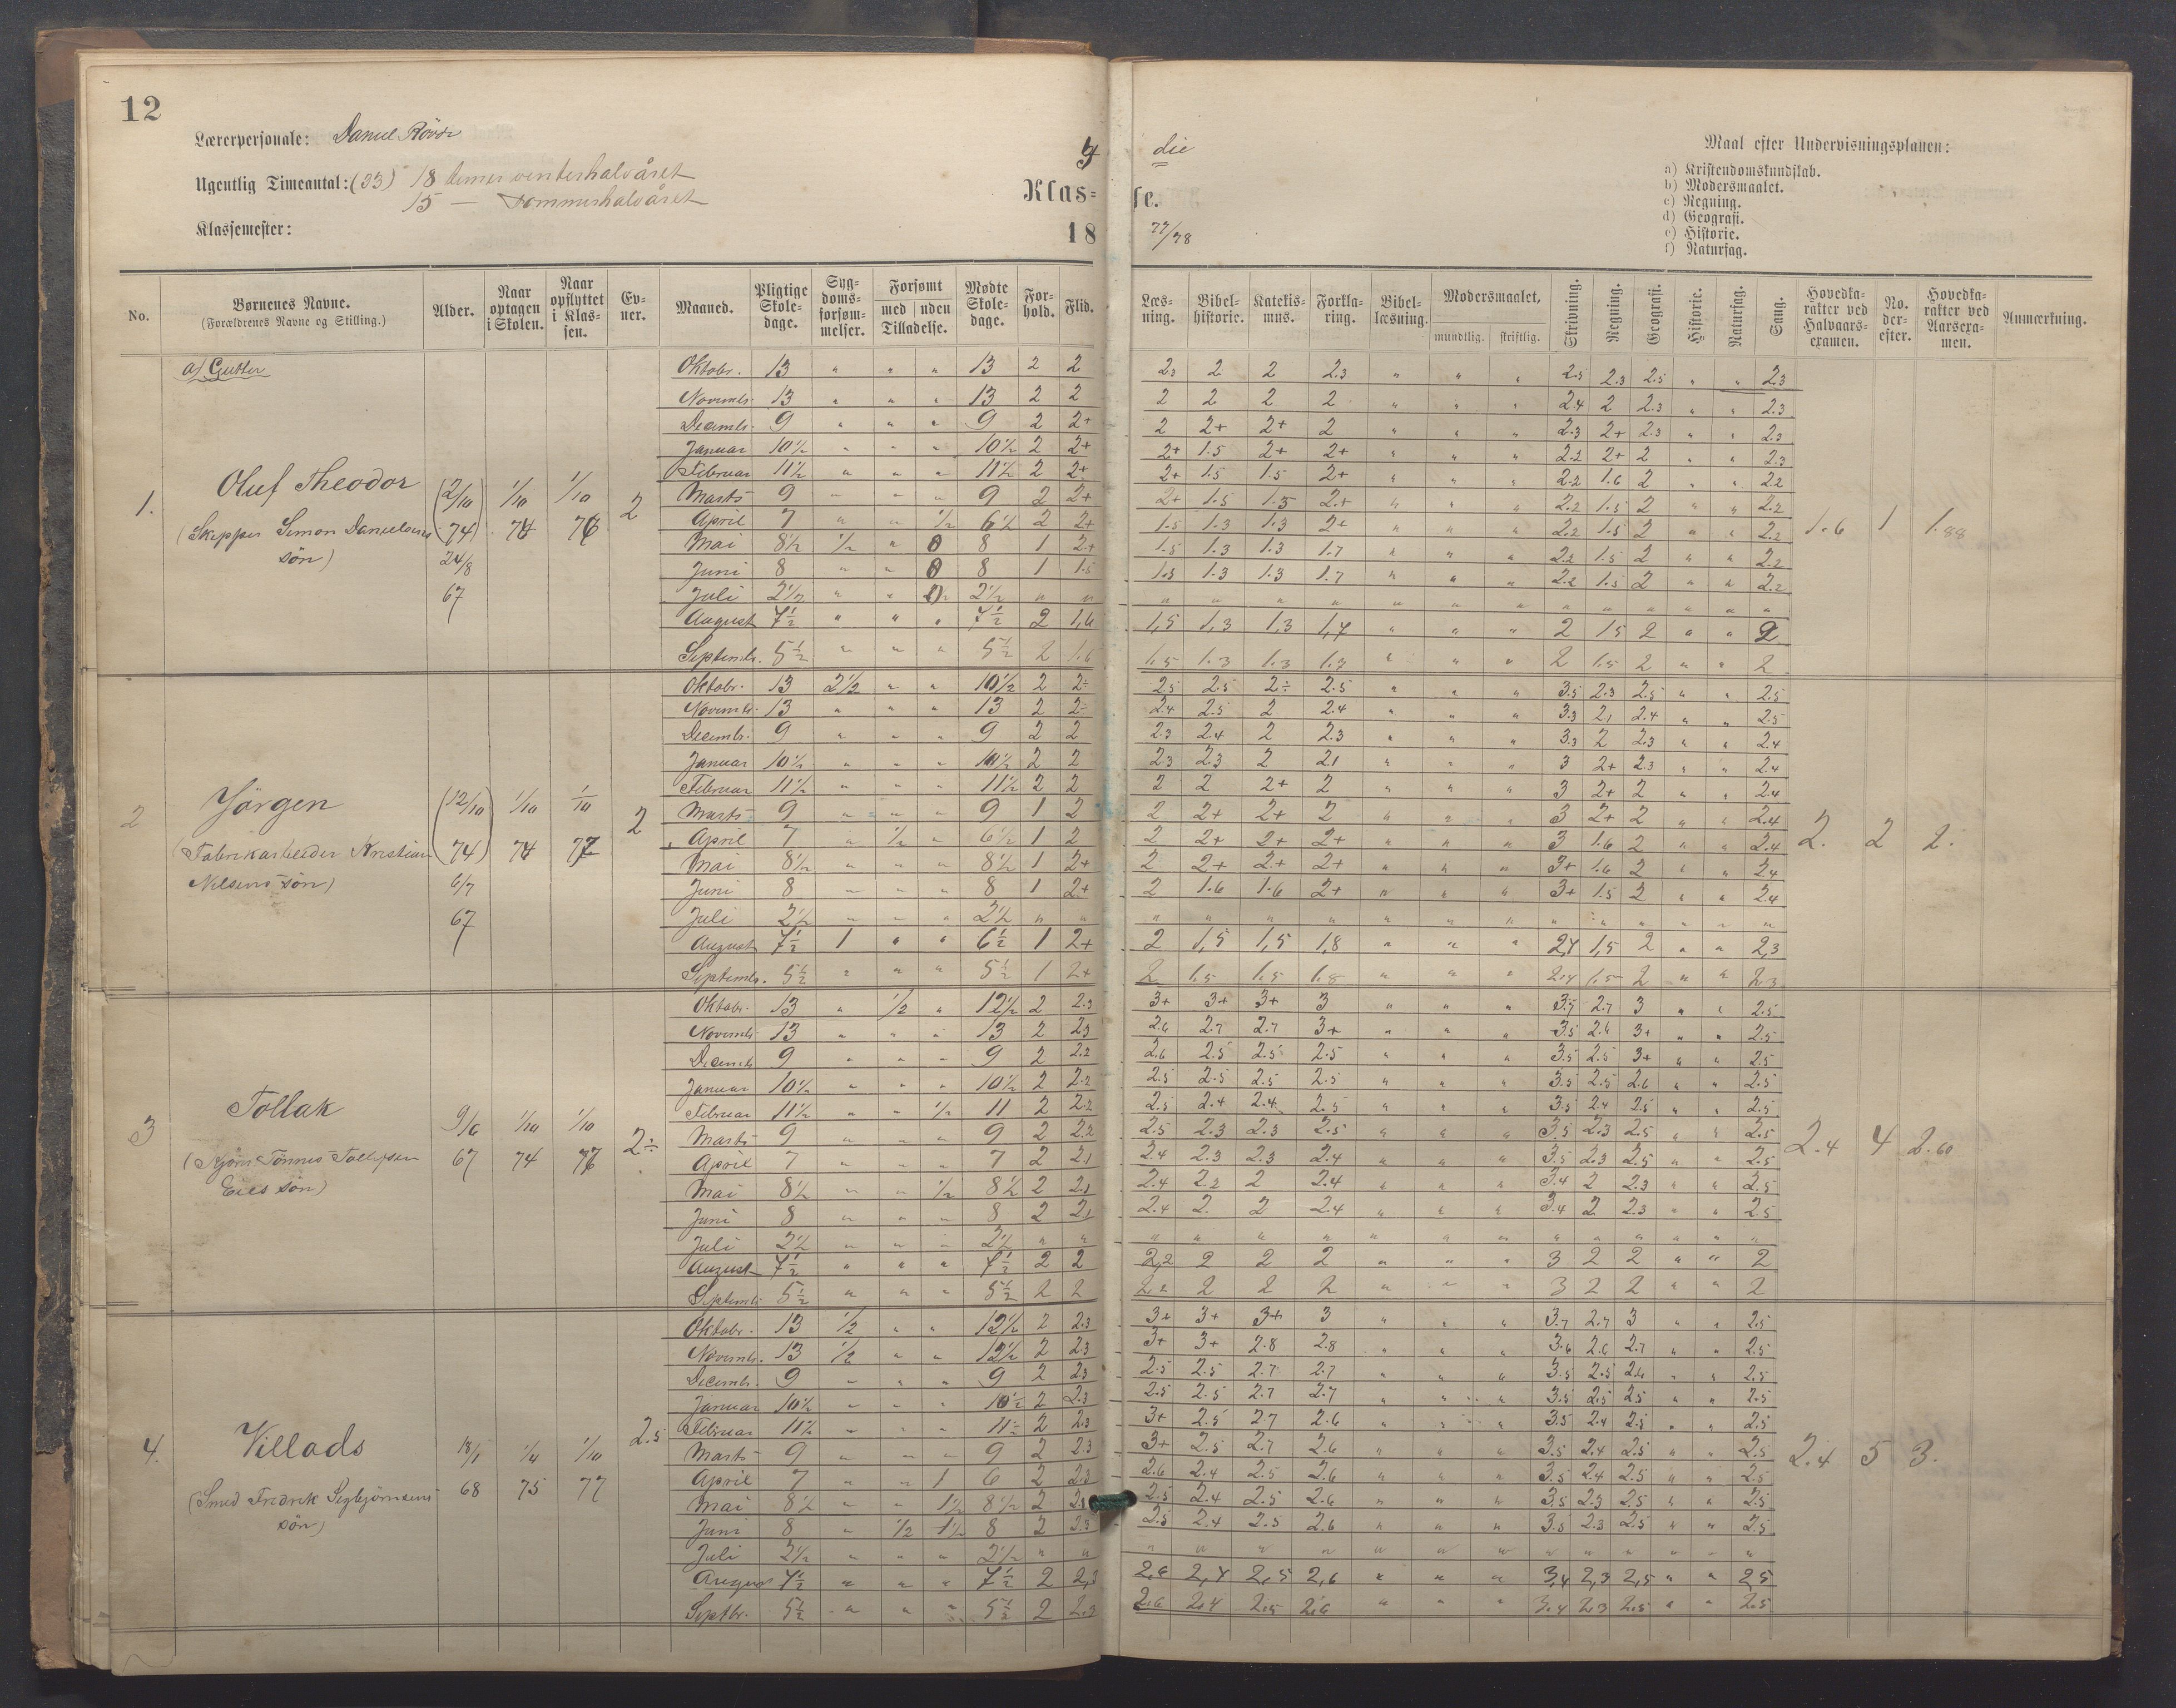 12
Lærerpersonale: Daniel
Ugentlig Timeantal: (33) 18 timer vinterhalvåret
15 — sommerhalvåret
Klassemester:
Klas= se.
die
18 77/78
Maal efter Undervisningsplanen:
a) Kristendomskundskab.
b) Modersmaalet.
c) Regning.
d) Geografi.
e) Historie.
f) Naturfag.
No.
Børnenes Navne.
(Forældrenes Navne og Stilling.)
Alder.
Naar optagen i Skolen.
Naar opflyttet i Klas- sen.
Ev- ner.
Maaned.
Pligtige Skole- dage.
Syg- doms- forsøm- melser.
Forsømt med uden Tilladelse.
Mødte Skole- dage.
For- hold.
Flid.
Læs- ning.
Bibel- historie.
Katekis- mus.
Forkla- ring.
Bibel- læsning.
Modersmaalet, mundtlig. skriftlig.
Skrivning.
Regning.
Geografi.
Historie.
Naturfag.
Sang.
Hovedka- rakter ved Halvaars- examen.
No- der- efter.
Hovedka- rakter ved Aarsexa- men.
Anmærkning.
a) Gutter
1. Oluf Theodor
(Skipper Simon Danielsens
søn)
(2/10 74) 24/8 67
1/10 74
1/10
2
Oktobr. 13 " " " 13 2 2 2.3 2 2 2.3 " " " 2.5 2.3 2.5 " " 2.3
Novembr. 13 " " " 13 2 2 2 2 2 2 " " " 2.4 2 2.3 " " 2.3
Decembr. 9 " " " 9 2 2+ 2 2+ 2+ 2 " " " 2.3 2+ 2.3 " " 2.3
Januar 10½ " " " 10½ 2 2+ 2+ 1.5 2+ 2+ " " " 2.2 2+ 2 " " 2.3
Februar 11½ " " " 11½ 2 2+ 2+ 1.5 1.5 2+ " " " 2.2 1.6 2 " " 2.2
Marts 9 " " " 9 2 2+ 2+ 1.5 1.5 2+ " " " 2.2 1.5 2 " " 2.2
April 7 " " ½ 6½ 2 2+ 1.5 1.3 1.3 2+ " " " 2.2 1.5 2 " " 2.2
Mai 8½ ½ " 0 8 1 2+ 1.5 1.3 1.3 1.7 " " " 2.2 1.5 2 " " 2.2
Juni 8 " " 0 8 1 1.5 1.5 1.3 1.3 1.7 " " " 2.2 1.5 2 " " 2.2
Juli 2½ " " 2½ " " " " " " " " " " " " " " "
August 7½ " " " 7½ 2 1,6 1,5 1,3 1,3 1,7 " " " 2 1.5 2 " " 2
Septembr. 5½ " " " 5½ 2 1.6 1.5 1.3 1.3 1.7 " " " 2 1.5 2 " " 2
1.6 1 1.88
2 Jörgen
(Fabrikarbeider Kristian
Nilsens søn)
(12/10 74) 6/7 67
1/10 74
1/10 77
2
Oktobr. 13 2½ " " 10½ 2 2÷ 2.5 2.5 2÷ 2.5 " " " 3.5 2.3 2.5 " " 2.5
Novembr. 13 " " " 13 2 2÷ 2.4 2.5 2 2.4 " " " 3.3 2.1 2.4 " " 2.5
Decembr. 9 " " " 9 2 2 2.3 2.4 2 2.3 " " " 3.3 2 2.3 " " 2.4
Januar 10½ " " " 10½ 2 2 2.3 2.3 2 2.1 " " " 3 2+ 2.3 " " 2.4
Februar 11½ " " " 11½ 2 2 2 2 2+ 2 " " " 3 2+ 2 " " 2.4
Marts 9 " " " 9 1 2 2 2+ 2+ 2 " " " 3 2+ 2 " " 2.4
April 7 " ½ " 6½ 1 2 2 2+ 2+ 2+ " " " 3 1.6 2 " " 2.4
Mai 8½ " " " 8½ 1 2+ 2 2+ 2+ 2+ " " " 3+ 1.6 2 " " 2.4
Juni 8 " " " 8 1 2+ 2 1.6 1.6 2+ " " " 3+ 1.5 2 " " 2.4
Juli 2½ " " " 2½ " " " " " " " " " " " " " " "
August 7½ 1 " " 6½ 1 2+ 2 1,5 1,5 1,8 " " " 2,4 1,5 2 " " 2,3
Septembr. 5½ " " " 5½ 1 2+ 2 1.5 1.5 1.8 " " " 2.4 1.5 2 " " 2.3
2. 2 2.
3 Tollak
9/6 67
1/10 74
1/10
2÷
Oktobr. 13 " ½ " 12½ 2 2.3 3+ 3+ 3+ 3 " " " 3.7 2.7 3 " " 2.5
Novembr. 13 " " " 13 2 2.3 2.6 2.7 2.7 3+ " " " 3.5 2.6 3+ " " 2.5
Decembr. 9 " " " 9 2 2.2 2.6 2.5 2.5 2.5 " " " 3.5 2.5 3+ " " 2.5
Januar 10½ " " " 10½ 2 2.2 2.5 2.5 2.5 2.5 " " " 3.5 2.5 2.6 " " 2.5
Februar 11½ " " ½ 11 2 2.2 2.5 2.4 2.4 2.5 " " " 3.5 2.4 2.5 " " 2.5
Marts 9 " " " 9 2 2.2 2.5 2.3 2.3 2.5 " " " 3.5 2.3 2.5 " " 2.5
April 7 " " " 7 2 2.1 2.4 2.3 2.3 2.4 " " " 3.5 2.3 2.5 " " 2.5
Mai 8½ " " ½ 8½ 2 2.1 2.4 2.2 2 2.4 " " " 3.4 2 2.3 " " 2.5
Juni 8 " " " 8 2 2.1 2.4 2. 2 2.4 " " " 3.4 2 2.3 " " 2.5
Juli 2½ " " " 2½ " " " " " " " " " " " " " " "
August 7½ " " " 7½ 2 2 2,2 2 2 2 " " " 3 2 2 " " 2
Septembr. 5½ " " " 5½ 2 2 2.2 2 2 2 " " " 3 2 2 " " 2
2.4 4 2.60
4. Villads
(Smed Fredrik Segbjörnsens
søn)
18/1 68
75
1/10 77
2.5
Oktobr. 13 ½ " " 12½ 2 2.3 3+ 3+ 3+ 3 " " " 3.7 2.7 3 " " 2.5
Novembr. 13 ½ " " 12½ 2 2.3 3+ 3+ 2.8 2.8 " " " 3.6 2.6 2.7 " " 2.5
Decembr. 9 " " " 9 2 2.3 2.5 2.5 2.7 2.7 " " " 3.5 2.5 2.6 " " 2.5
Januar 10½ " " " 10½ 2 2.3 2.5 2.5 2.7 2.7 " " " 3.5 2.5 2.5 " " 2.5
Februar 11½ " " " 11½ 2 2.3 3+ 2.5 2.7 2.6 " " " 3.5 2.4 2.5 " " 2.5
Marts 9 " " " 9 2 2.3 3+ 2.5 2.7 2.6 " " " 3.5 2.4 2.5 " " 2.5
April 7 " " 1 6 2 2.3 2.6 2.4 2.5 2.6 " " " 3.5 2.4 2.5 " " 2.5
Mai 8½ " " 1½ 8½ 2 2.3 2.5 2.4 2.5 2.6 " " " 3.5 2.3 2.5 " " 2.5
Juni 8 " ½ 1½ 8 2 2.3 2.5 2.4 2.5 2.6 " " " 3.5 2.3 2.5 " " 2.5
Juli 2½ " " " 2½ " " " " " " " " " " " " " " "
August 7½ " " " 7½ 2 2,3 2,6 2,4 2,5 2,6 " " " 3,4 2,3 2,5 " " 2,5
Septbr. 5½ " " " 5½ 2 2.3 2.6 2.4 2.5 2.6 " " " 3.4 2.3 2.5 " " 2.5
2.4 5 3.